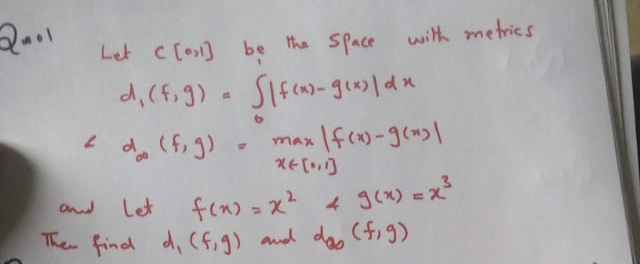 Qno1 Let C[0,1] be the space with metrics
d₁(f,g) = ∫₀¹|f(x)-g(x)|dx
& d∞(f,g) = max |f(x)-g(x)|
x∈[0,1]
and Let f(x) = x² & g(x) = x³
Then find d₁(f,g) and d∞(f,g)